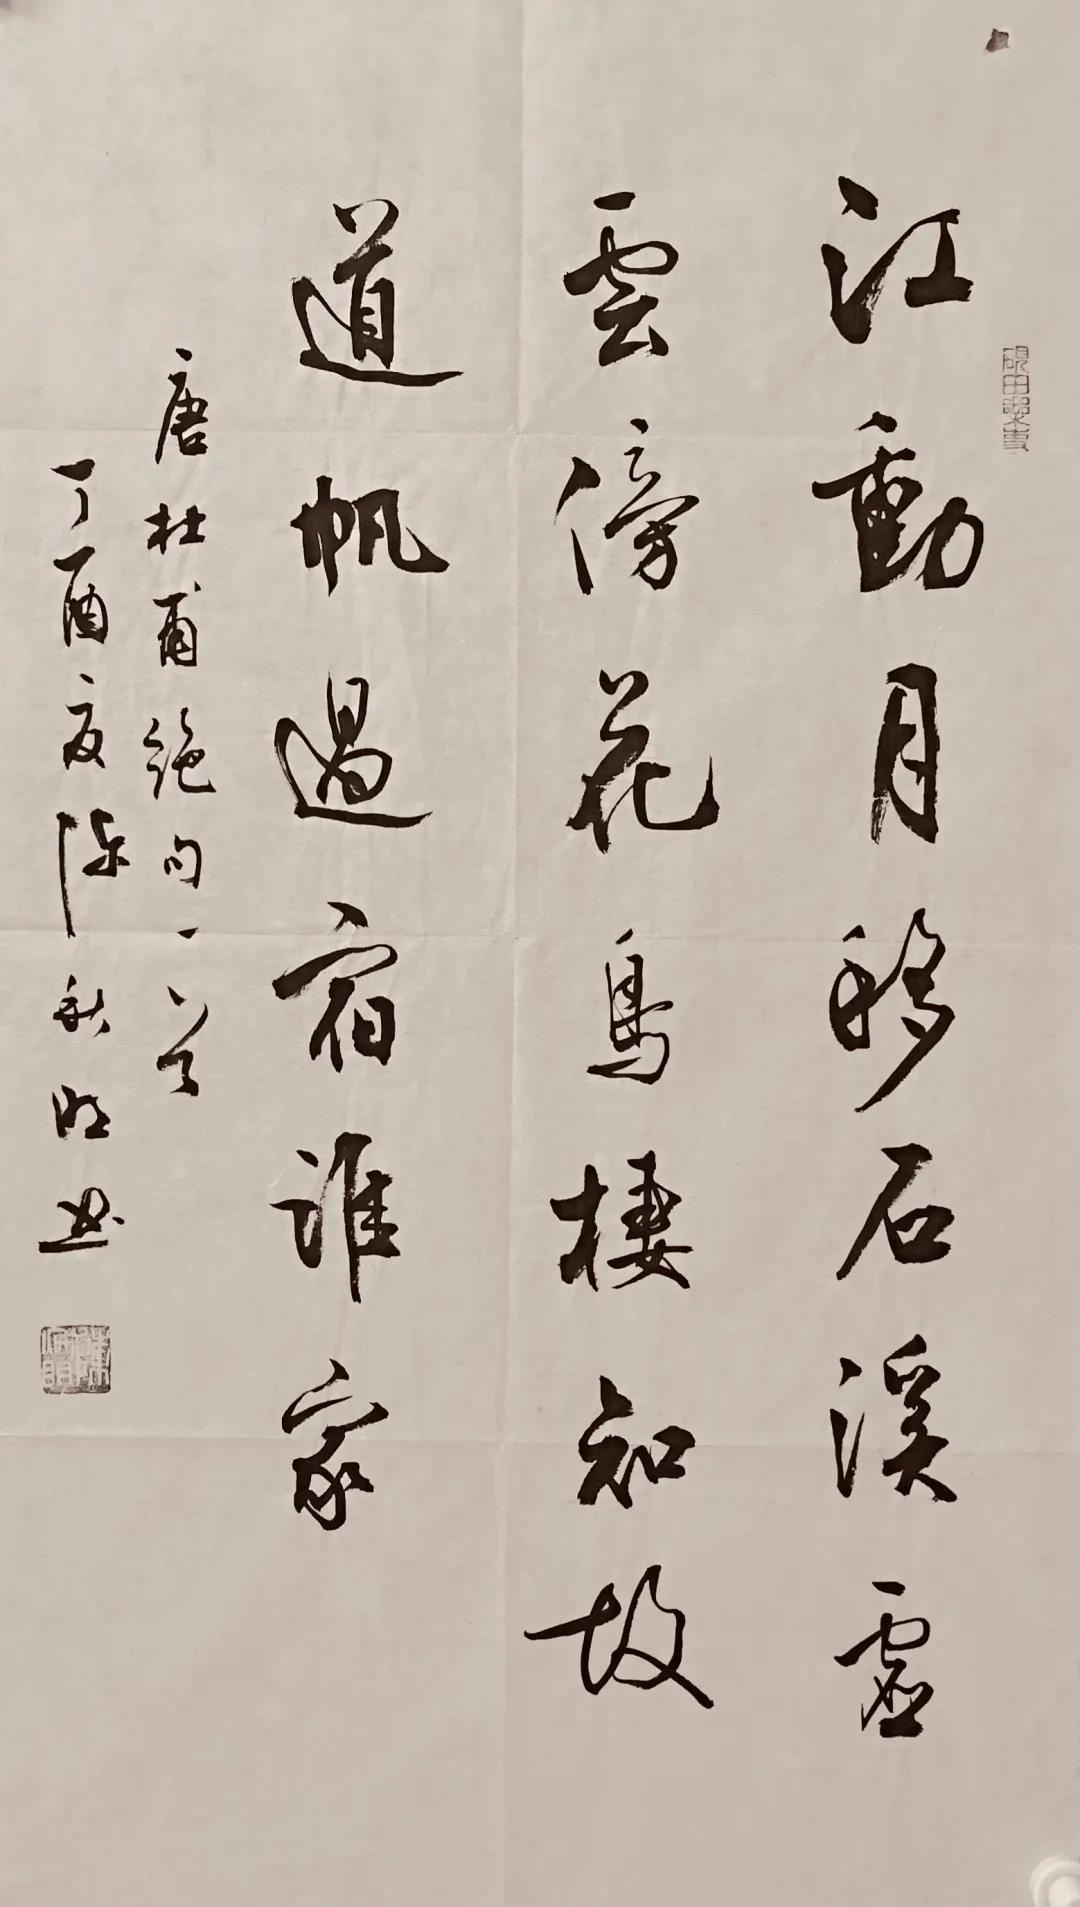 江動月移石溪虛
雲傍花鳥棲知故
道帆過宿誰家
唐杜甫絕句一首
丁酉夏陳秋明書
硯田樂事
陳秋明印